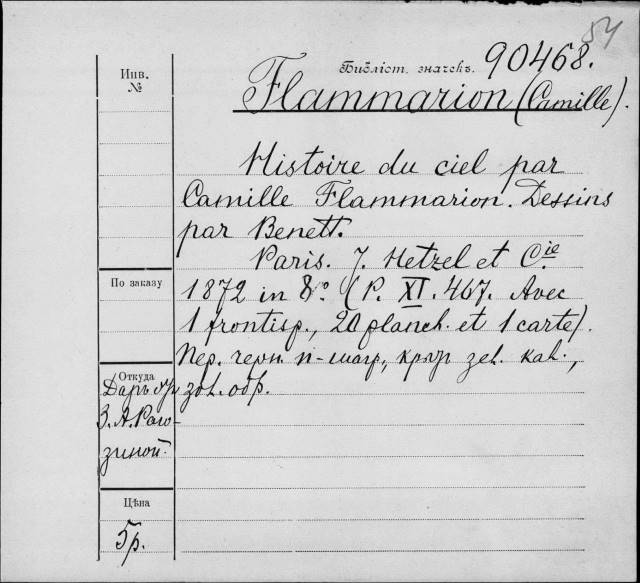 54
Инв.
№
Библіот. значекъ. 90468.
Flammarion (Camille).
Histoire du ciel par
Camille Flammarion. Dessins
par Benett.
Paris. J. Hetzel et Cie.
1872 in 8º. (P. XI. 467. Avec
1 frontisp., 20 planch. et 1 carte).
Пер. черн. п-шагр., крыт зел. кал.,
зол. обр.
По заказу
Откуда
Даръ
З. А. Раго-
зиной.
Цѣна
5р.